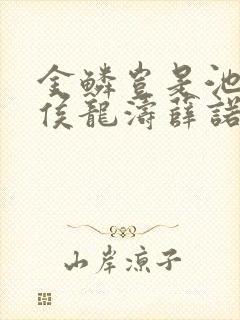 金鱗豈是池
侯龍濤薛諾
山岸凉子